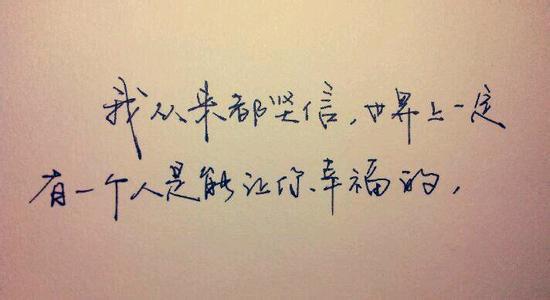 我从来都坚信，世界上一定
有一个人是能让你幸福的，